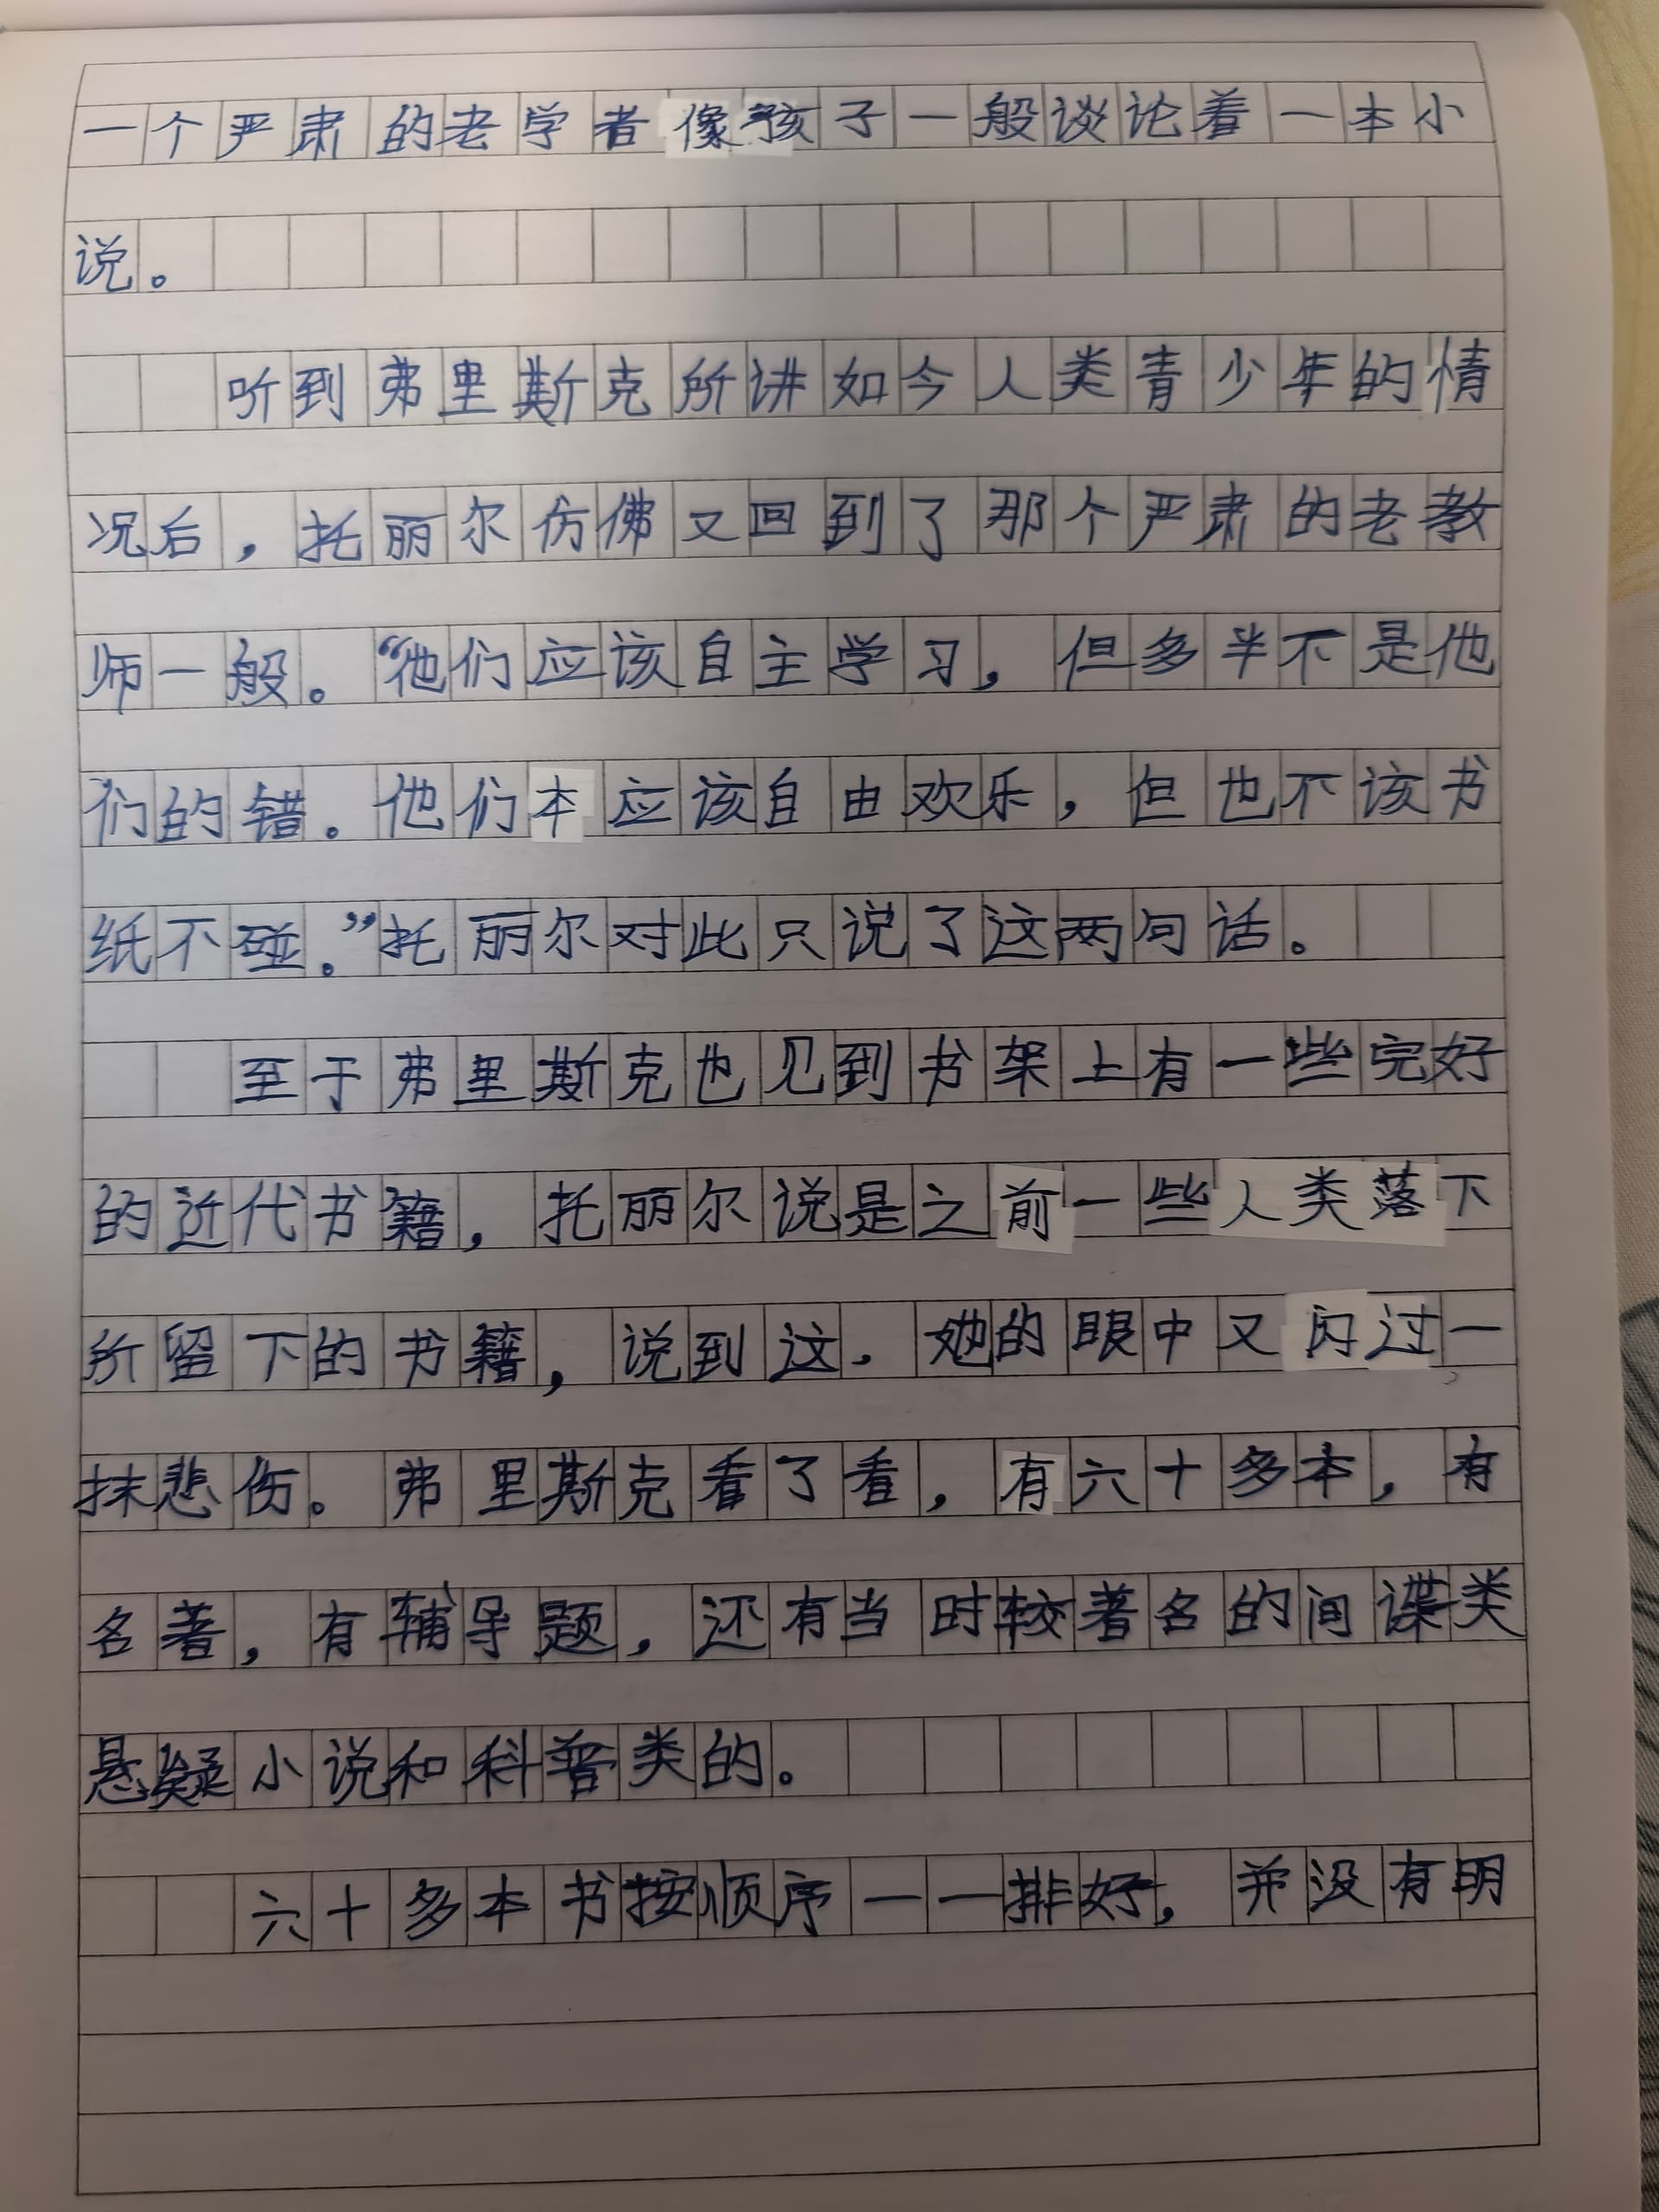 一个严肃的老学者像孩子一般谈论着一本小
说。
听到弗里斯克所讲如今人类青少年的情
况后，托丽尔仿佛又回到了那个严肃的老教
师一般。“他们应该自主学习，但多半不是他
们的错。他们本应该自由欢乐，但也不该书
纸不碰。”托丽尔对此只说了这两句话。
至于弗里斯克也见到书架上有一些完好
的近代书籍，托丽尔说是之前一些人类落下
所留下的书籍，说到这，她的眼中又闪过一
抹悲伤。弗里斯克看了看，有六十多本，有
名著，有辅导题，还有当时较著名的间谍类
悬疑小说和科普类的。
六十多本书按顺序一一排好，并没有明